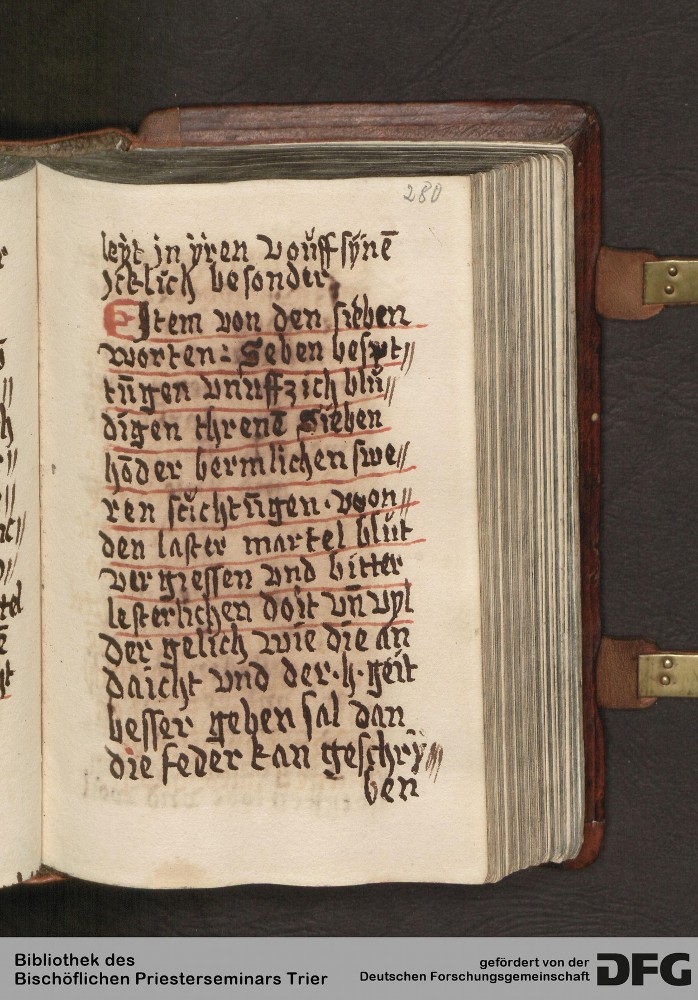 280
leÿt jn ÿren vŏuff sÿnē
jcklich besonder
Jtem von den sieben
worten: Seben besπt//
tūgen vnuffzich blŭ//
digen threnē Sieben
hōder bermlichen swe//
ren sŭchtūgen. voon//
den laster martel blŭt
ver giessen vnd bitter
lesterlichen doit vn̄ vyl
der gelich wie die an
daicht vnd der .h. geit
besser geben sal dan
die feder kan geschrÿ//
ben
Bibliothek des
Bischöflichen Priesterseminars Trier
gefördert von der
Deutschen Forschungsgemeinschaft
DFG